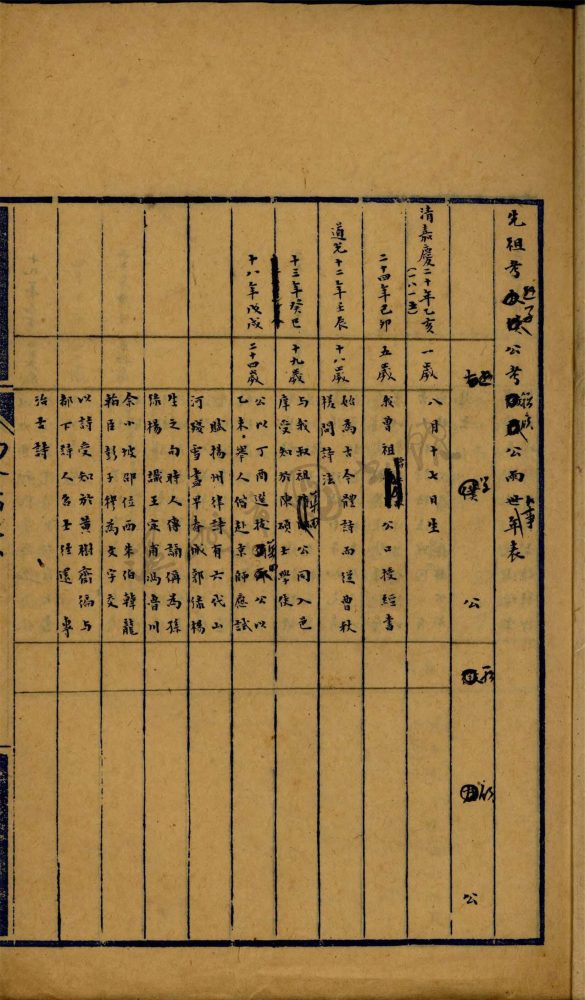 先祖考 公考 公兩世年表
公
公
清嘉慶二十年乙亥 一歲 八月十七日生
(一八一五)
二十四年己卯 五歲 我曾祖 公口授經書
道光十二年壬辰 十八歲 始為古今體詩而從曾秋
槎問詩法
十三年癸巳 十九歲 與我叔祖 公同入邑
庠受知於陳碩士學使
十八年戊戌 二十四歲 公以丁酉選拔 公以
乙未舉人偕赴京師應試
賦揚州律詩有六代山
河殘雪盡早春城郭綠楊
生之句時人傳誦稱為孫
綠楊 識王定甫馮魯川
余小坡邵位西朱伯韓龍
翰臣彭子穆為文字交
以詩受知於黃樹齋徧與
都下詩人名士往還 專
治古詩